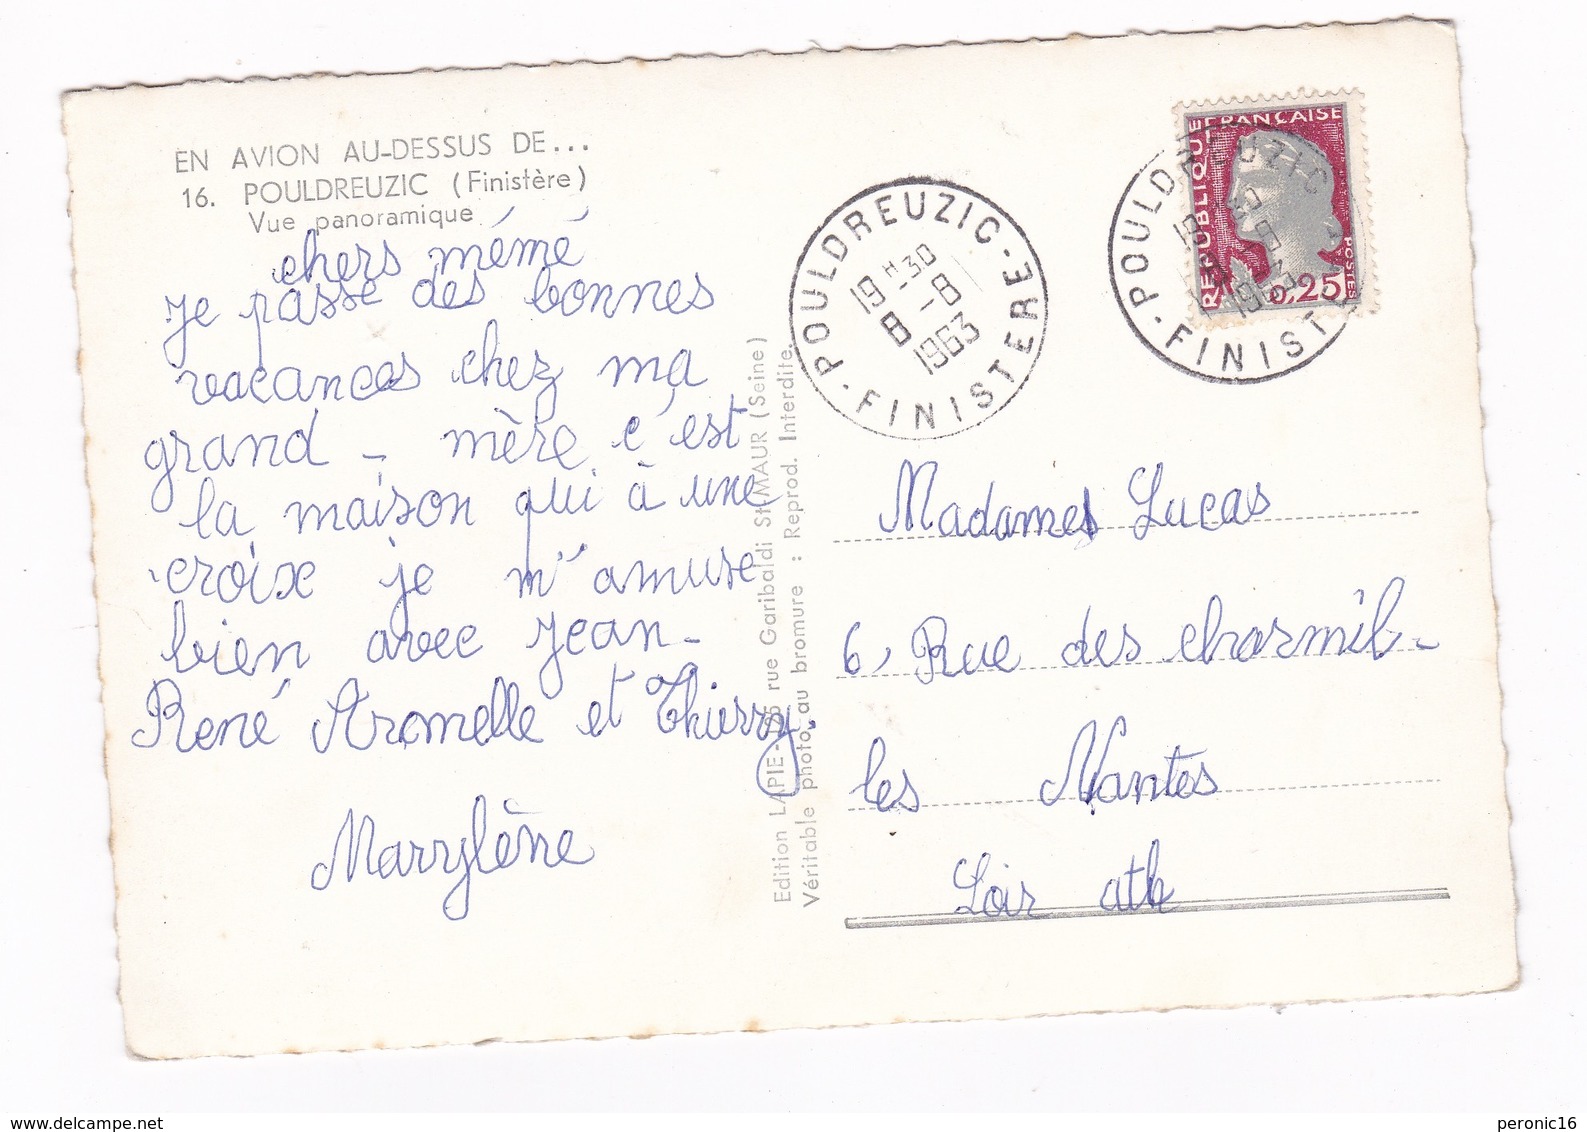 EN AVION AU-DESSUS DE...
16. POULDREUZIC (Finistère)
Vue panoramique
chers mémé
je passe des bonnes
vacances chez ma
grand - mère c'est
la maison qui à une
croix je m'amuse
bien avec jean-
René Armelle et Thierry.
Marrylène
Edition LAPIE- rue Garibaldi St-MAUR (Seine)
Véritable photo au bromure : Reprod. Interdite.
POULDREUZIC - FINISTERE -
19 H 30
8 - 8
1963
REPUBLIQUE FRANÇAISE
POSTES
0,25
POULDREUZIC
- FINIST
19 30
Madames Lucas
6, Rue des charmil-
les Nantes
Loir atl
www.delcampe.net
peronic16